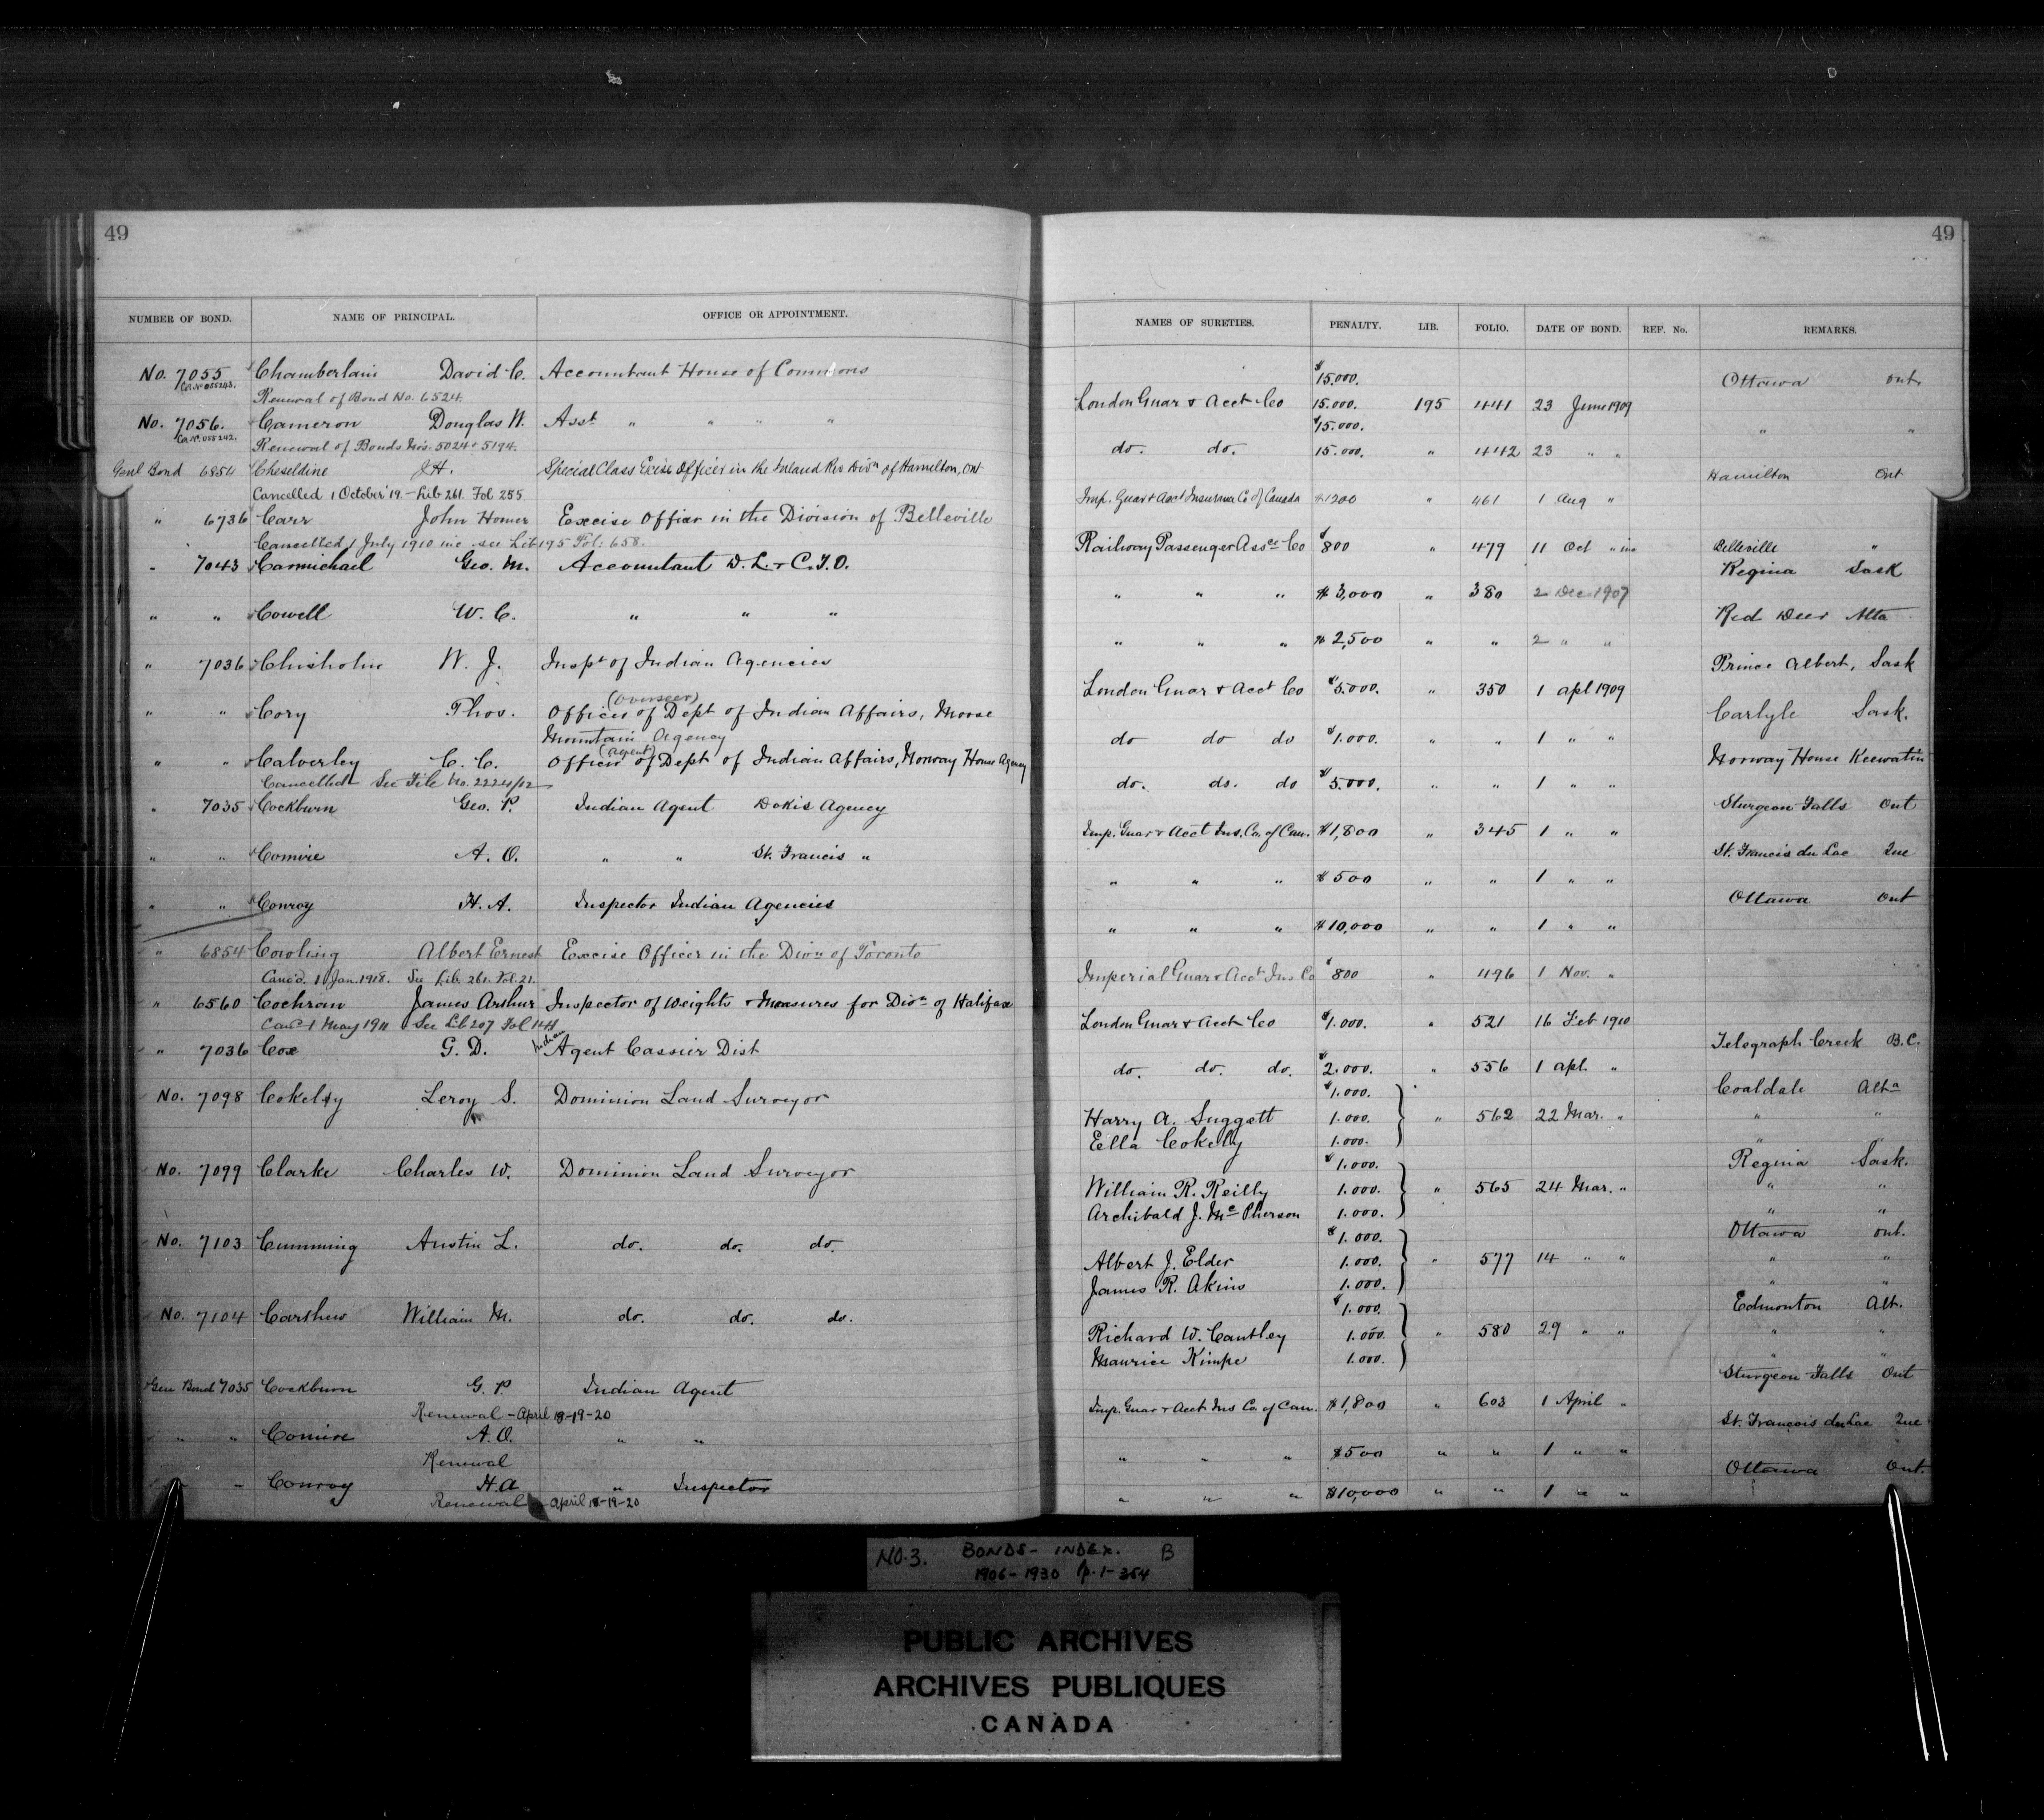 49
49
NUMBER OF BOND. NAME OF PRINCIPAL. OFFICE OR APPOINTMENT. NAMES OF SURETIES. PENALTY. LIB. FOLIO. DATE OF BOND. REF. No. REMARKS.
No. 7055 Chamberlain David C. Accountant House of Commons $15.000. Ottawa Ont.
Renewal of Bond No. 6524. London Guar & Acct Co 15.000. 195 441 23 June 1909
No. 7056. Cameron Douglas W. Asst " " " " $15.000. " "
Renewal of Bonds Nos. 5024 & 5194. do. do. 15.000. " 442 23 " "
Genl Bond 6854 Cheseldine J.H. Special Class Excise Officer in the Inland Rev Divn of Hamilton, Ont Hamilton Ont
Cancelled 1 October '19. - Lib 261. Fol 255 Imp. Guar & Acct Insurance Co of Canada $1200 " 461 1 Aug "
" 6736 Carr John Homer Excise Officer in the Division of Belleville
Cancelled 1 July 1910 inc see Lib 195 Fol: 658. Railway Passenger Assce Co $800 " 479 11 Oct " inc Belleville "
" 7043 Carmichael Geo. M. Accountant D. L. & C.T.O. Regina Sask
" " " $3,000 " 380 2 Dec 1907
" " Cowell W. C. " " " Red Deer Alta
" " " $2,500 " " 2 " "
" 7036 Chisholm W. J. Inspt of Indian Agencies Prince Albert, Sask
London Guar & Acct Co $5.000. " 350 1 Apl 1909
(Overseer)
" " Cory Thos. Officer of Dept of Indian Affairs, Moose Carlyle Sask.
Mountain Agency do do do $1.000. " " 1 " "
(Agent)
" " Calverley C. C. Officer of Dept of Indian Affairs, Norway House Agency Norway House Keewatin
Cancelled See File No. 2224/12 do. do. do $5.000. " " 1 " "
" 7035 Cockburn Geo. P. Indian Agent Dokis Agency Sturgeon Falls Ont
Imp. Guar & Acct Ins. Co. of Can. $1,800 " 345 1 " "
" " Comire A. O. " " St. Francis " St. Francis du Lac Que
" " " $500 " " 1 " "
" " Conroy H. A. Inspector Indian Agencies Ottawa Ont
" " " $10,000 " " 1 " "
" 6854 Cowling Albert Ernest Excise Officer in the Divn of Toronto
Canc'd. 1 Jan. 1918. See Lib. 261. Fol. 21. Imperial Guar & Acct Ins Co $800 " 496 1 Nov. "
" 6560 Cochran James Arthur Inspector of Weights & Measures for Divn of Halifax
Canc 1 May 1911 See Lib 207 Fol 144 London Guar & Acct Co $1.000. " 521 16 Feb 1910
" 7036 Cox G. D. Indian Agent Cassier Dist Telegraph Creek B.C.
do. do. do. $2.000. " 556 1 Apl. "
No. 7098 Cokely Leroy S. Dominion Land Surveyor $1.000. Coaldale Alta
Harry A. Suggett 1.000. " 562 22 Mar. " " "
Ella Cokely 1.000. " "
No. 7099 Clarke Charles W. Dominion Land Surveyor $1.000. Regina Sask.
William R. Reilly 1.000. " 565 24 Mar. " " "
Archibald J. McPherson 1.000. " "
No. 7103 Cumming Austin L. do. do. do. $1.000. Ottawa Ont.
Albert J. Elder 1.000. " 577 14 " " " "
James R. Akins 1.000. " "
No. 7104 Carthew William M. do. do. do. $1.000. Edmonton Alt.
Richard W. Cautley 1.000. " 580 29 " " " "
Maurice Kimpe 1.000. " "
Gen Bond 7035 Cockburn G. P Indian Agent Sturgeon Falls Ont
Renewal - April 18-19-20 Imp. Guar & Acct Ins Co. of Can. $1,800 " 603 1 April "
" " Comire A. O. " " St. François du Lac Que
Renewal " " " $500 " " 1 " "
" " Conroy H. A " Inspector Ottawa Ont.
Renewal - April 18-19-20 " " " $10,000 " " 1 " "
NO. 3. BONDS - INDEX. B
1906-1930 p. 1-354
PUBLIC ARCHIVES
ARCHIVES PUBLIQUES
CANADA